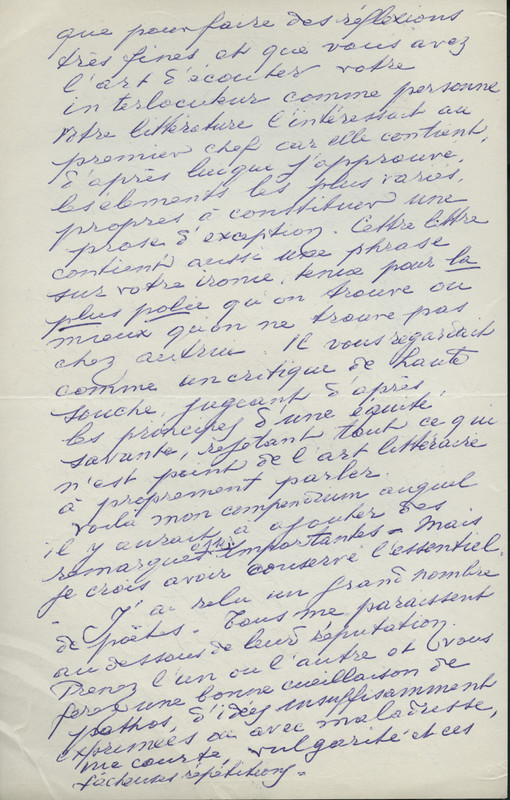 que pour faire des réflexions
très fines et que vous avez
l'art d'écouter votre
interlocuteur comme personne
Votre littérature l'intéressait au
premier chef car elle contient,
d'après lui que j'approuve,
les éléments les plus variés,
propres à constituer une
prose d'exception. Cette lettre
contient aussi une phrase
sur votre ironie, tenue pour la
plus polie qu'on trouve ou
mieux qu'on ne trouve pas
chez autrui. Il vous regardait
comme un critique de haute
souche, jugeant d'après
les principes d'une équité
savante, rejetant tout ce qui
n'est point de l'art littéraire
à proprement parler.
Voilà mon compendium auquel
il y aurait à ajouter des
remarques assez importantes - Mais
je crois avoir conservé l'essentiel.
- J'ai relu un grand nombre
de poètes - Tous me paraissent
au dessous de leur réputation.
Prenez l'un ou l'autre et vous
ferez une bonne cueillaison de
pathos, d'idées insuffisamment
exprimées ou avec maladresse,
courte, vulgarité et ces
fâcheuses répétitions -